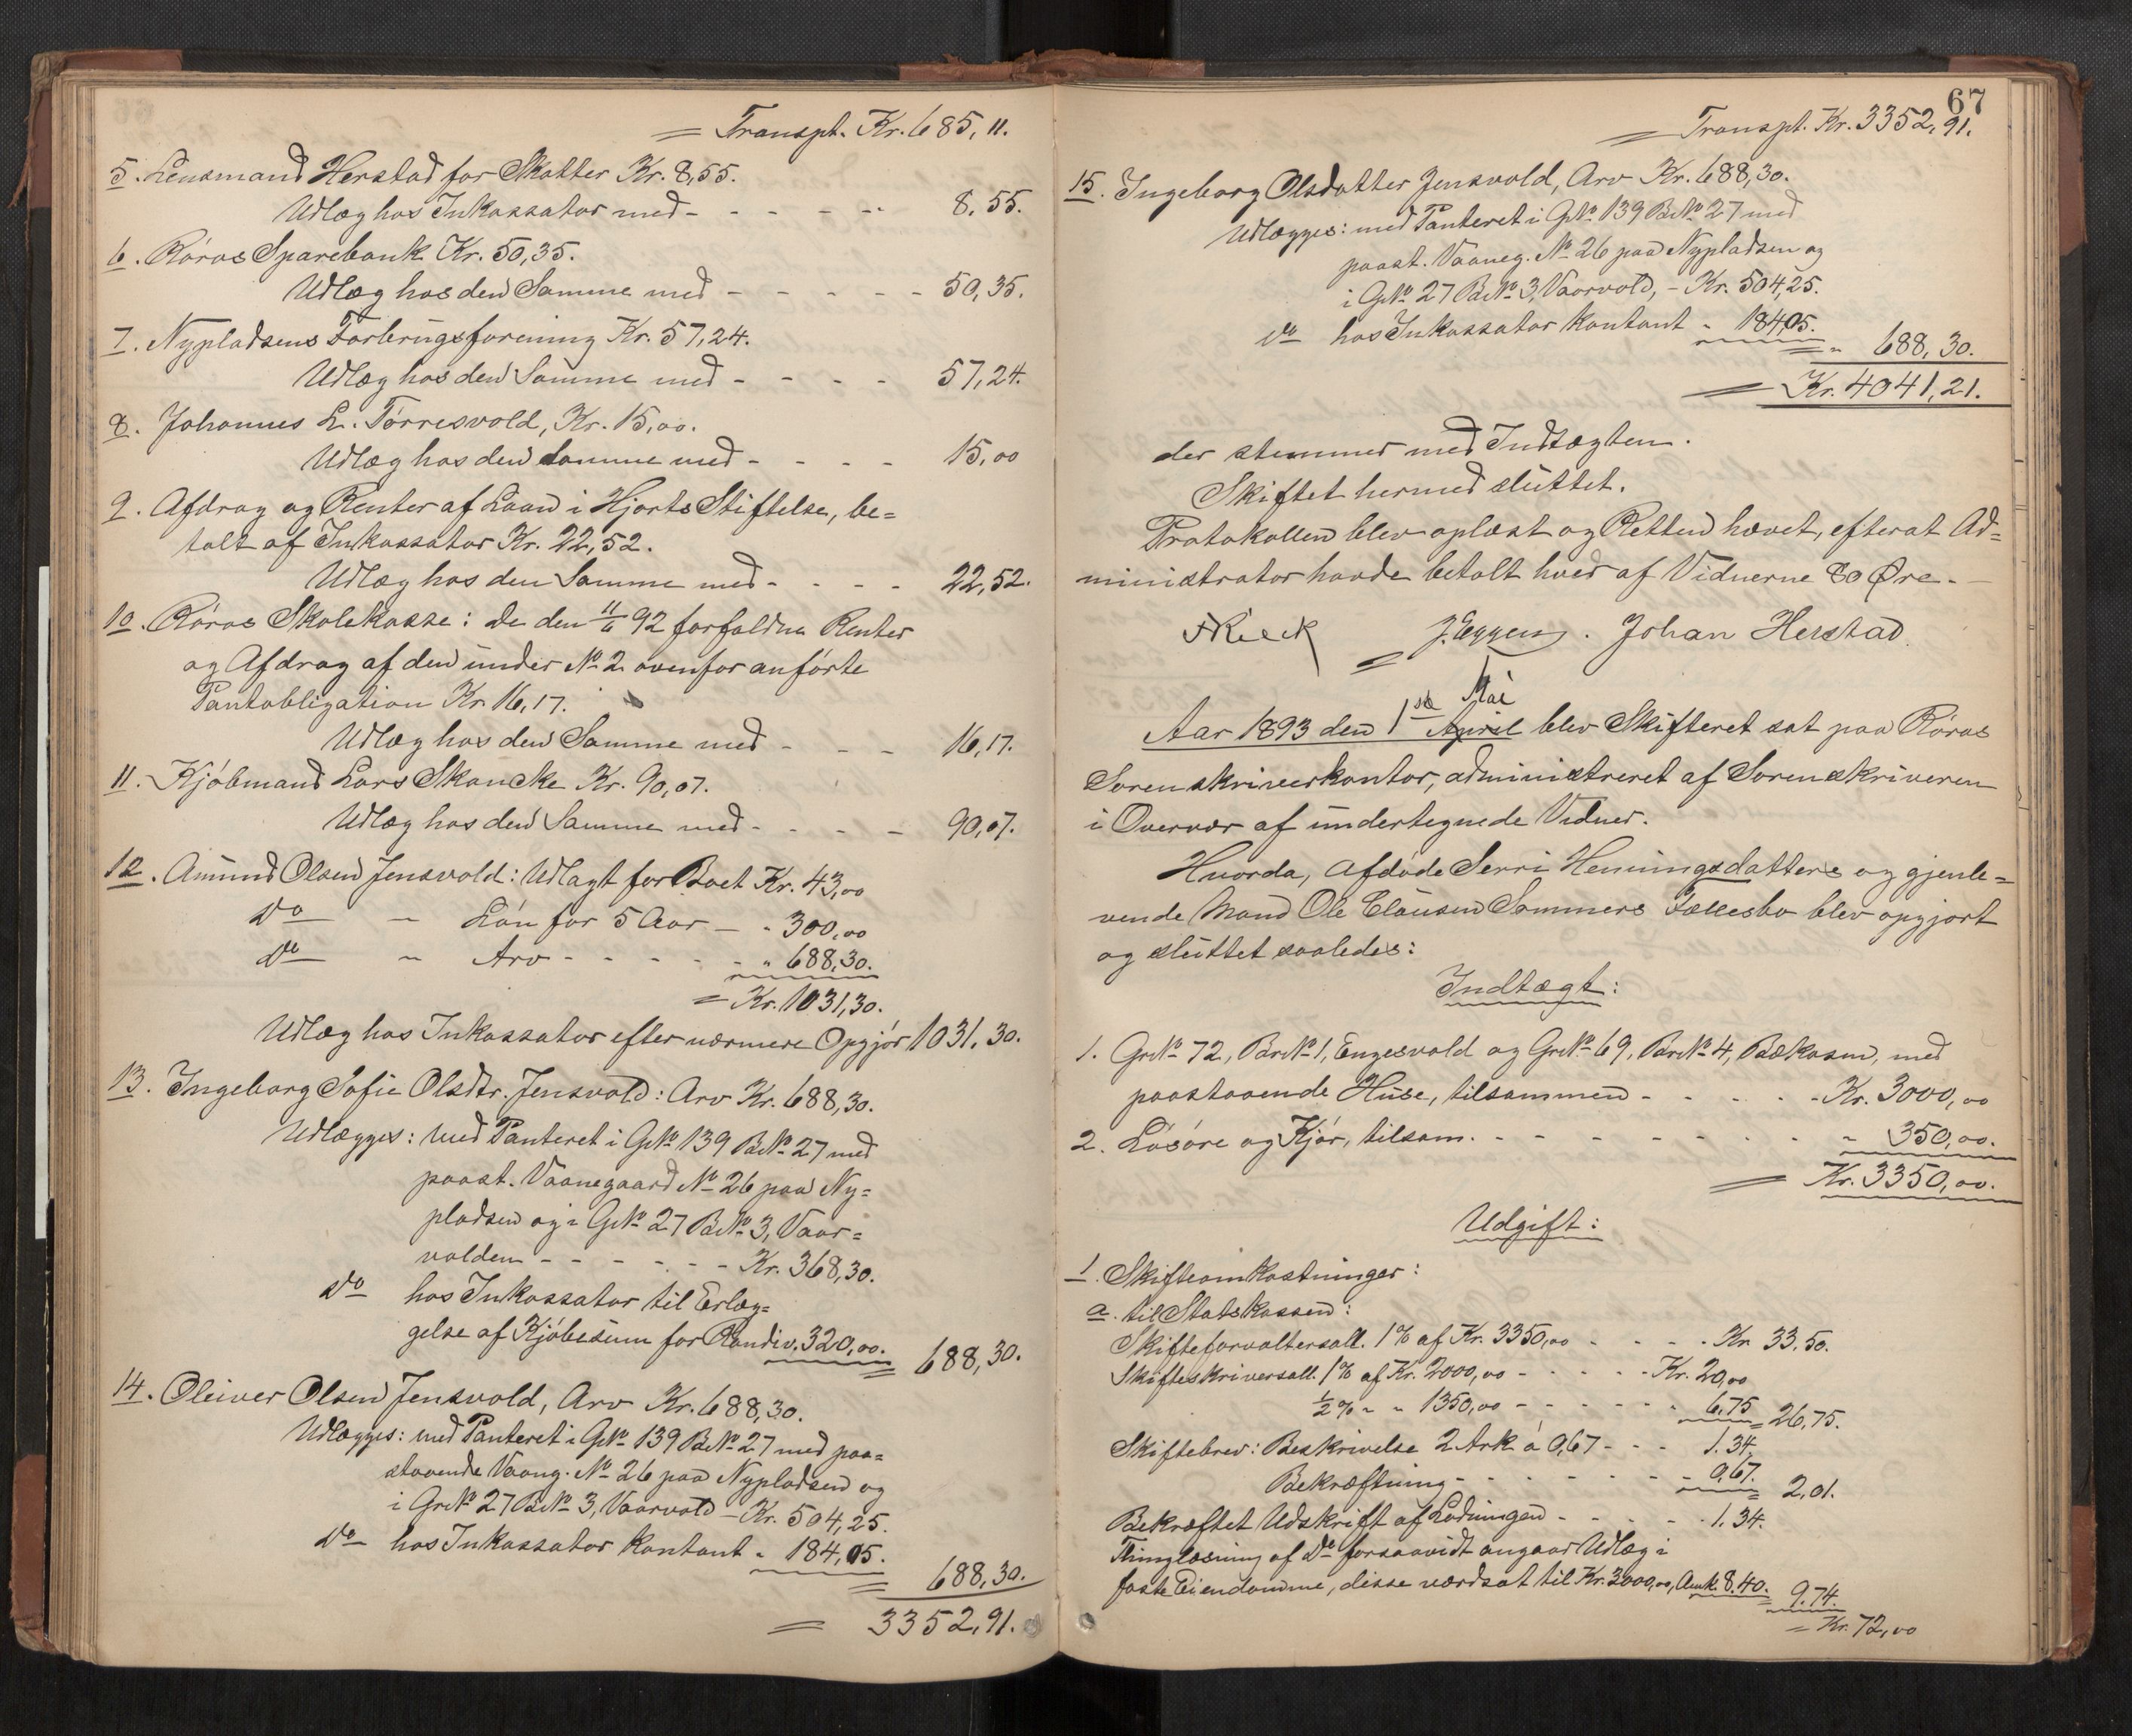 = Transpt. Kr. 685,11.
5. Lensmand Herstad for Skatter Kr. 8,55.
Udlæg hos Inkassator med - - - - - 8,55.
6. Röros Sparebank Kr. 50,35.
Udlæg hos den Samme med - - - - - 50,35.
7. Nypladsens Forbrugsforening Kr. 57,24.
Udlæg hos den Samme med - - - - 57,24.
8. Johannes L. Törresvold, Kr. 15,00.
Udlæg hos den Samme med - - - - 15,00
9. Afdrag og Renter af Laan i Hjorts Stiftelse, be=
talt af Inkassator Kr. 22,52.
Udlæg hos den Samme med - - - - 22,52.
10. Röros Skolekasse: de den 11/6 92 forfaldne Renter
og Afdrag af den under No 2 ovenfor anförte
Pantobligation Kr. 16,17.
Udlæg hos den Samme med - - - 16,17.
11. Kjöbmand Lars Skancke Kr. 90,07.
Udlæg hos den Samme med - - - - 90,07.
12. Amund Olsen Jensvold: Udlagt for Boet Kr. 43,00
Do - Lön for 5 Aar - " 300,00
Do - Arv - - - - - " 688,30.
= Kr. 1031,30.
Udlæg hos Inkassator efter nærmere Opgjör 1031,30.
13. Ingeborg Sofie Olsdtr. Jensvold: Arv Kr. 688,30.
Udlægges: med Panteret i GNo 139 BNo 27 med
paast. Vaanegaard No 26 paa Ny=
pladsen og i GNo 27 BNo 3, Vaar=
volden - - - - - - Kr. 368,30.
Do hos Inkassator til Erlæg=
gelse af Kjöbesum for Randiv. 320,00.
= 688,30.
14. Oleiver Olsen Jensvold, Arv Kr. 688,30.
Udlægges: med Panteret i GNo 139 BNo 27 med paa=
staaende Vaang. No 26 paa Nypladsen og
i GrNo 27 BNo 3, Vaarvold - Kr. 504,25.
Do hos Inkassator kontant " 184,05.
= 688,30.
= 3352,91.
67
= Transpt. Kr. 3352,91.
15. Ingeborg Olsdatter Jensvold, Arv Kr. 688,30.
Udlægges: med Panteret i GNo 139 BNo 27 med
paast. Vaaneg. No 26 paa Nypladsen og
i GNo 27 BNo 3, Vaarvold, - Kr. 504,25.
Do hos Inkassator kontant " 184,05.
= " 688,30.
= Kr. 4041,21.
der stemmer med Indtægten.
Skiftet hermed sluttet.
Protokollen blev oplæst og Retten hævet, efterat Ad=
ministrator havde betalt hver af Vidnerne 80 Öre. -
J. Eggen. Johan Herstad.
Aar 1893 den 1ste April Mai blev Skifteret sat paa Röros
Sorenskriverkontor, administreret af Sorenskriveren
i Overvær af undertegnede Vidner.
Hvorda, Afdöde Serri Henningsdatters og gjenle=
vende Mand Ole Clausen Sommers Fællesbo blev opgjort
og sluttet saaledes:
Indtægt:
1. GrNo 72, BrNo 1, Engesvold og GrNo 69, BrNo 4, Bækosen, med
paastaaende Huse, tilsammen - - - - - Kr. 3000,00
2. Lösöre og Kjör, tilsam. - - - - - - - - - 350,00.
= Kr. 3350,00.
Udgift:
1. Skifteomkostninger:
a. til Statskassen:
Skifteforvaltersall. 1% af Kr. 3350,00 - - - - Kr. 33,50.
Skifteskriversall. 1% af Kr. 2000,00 - - - - - Kr. 20,00
1/2 % - " 1350,00 - - - - - - 6,75 = 26,75.
Skiftebrev: Beskrivelse 2 Ark á 0,67 - - - 1.34.
Bekræftning - - - - - - - 0,67.
= 2,01.
Bekræftet Udskrift af Lodningen - - - - - 1.34.
Thinglæsning af Do forsaavidt angaar Udlæg i
faste Eiendomme, disse værdsat til Kr. 3000,00, Anmk. 8.40. 9.74.
= Kr. 72,00